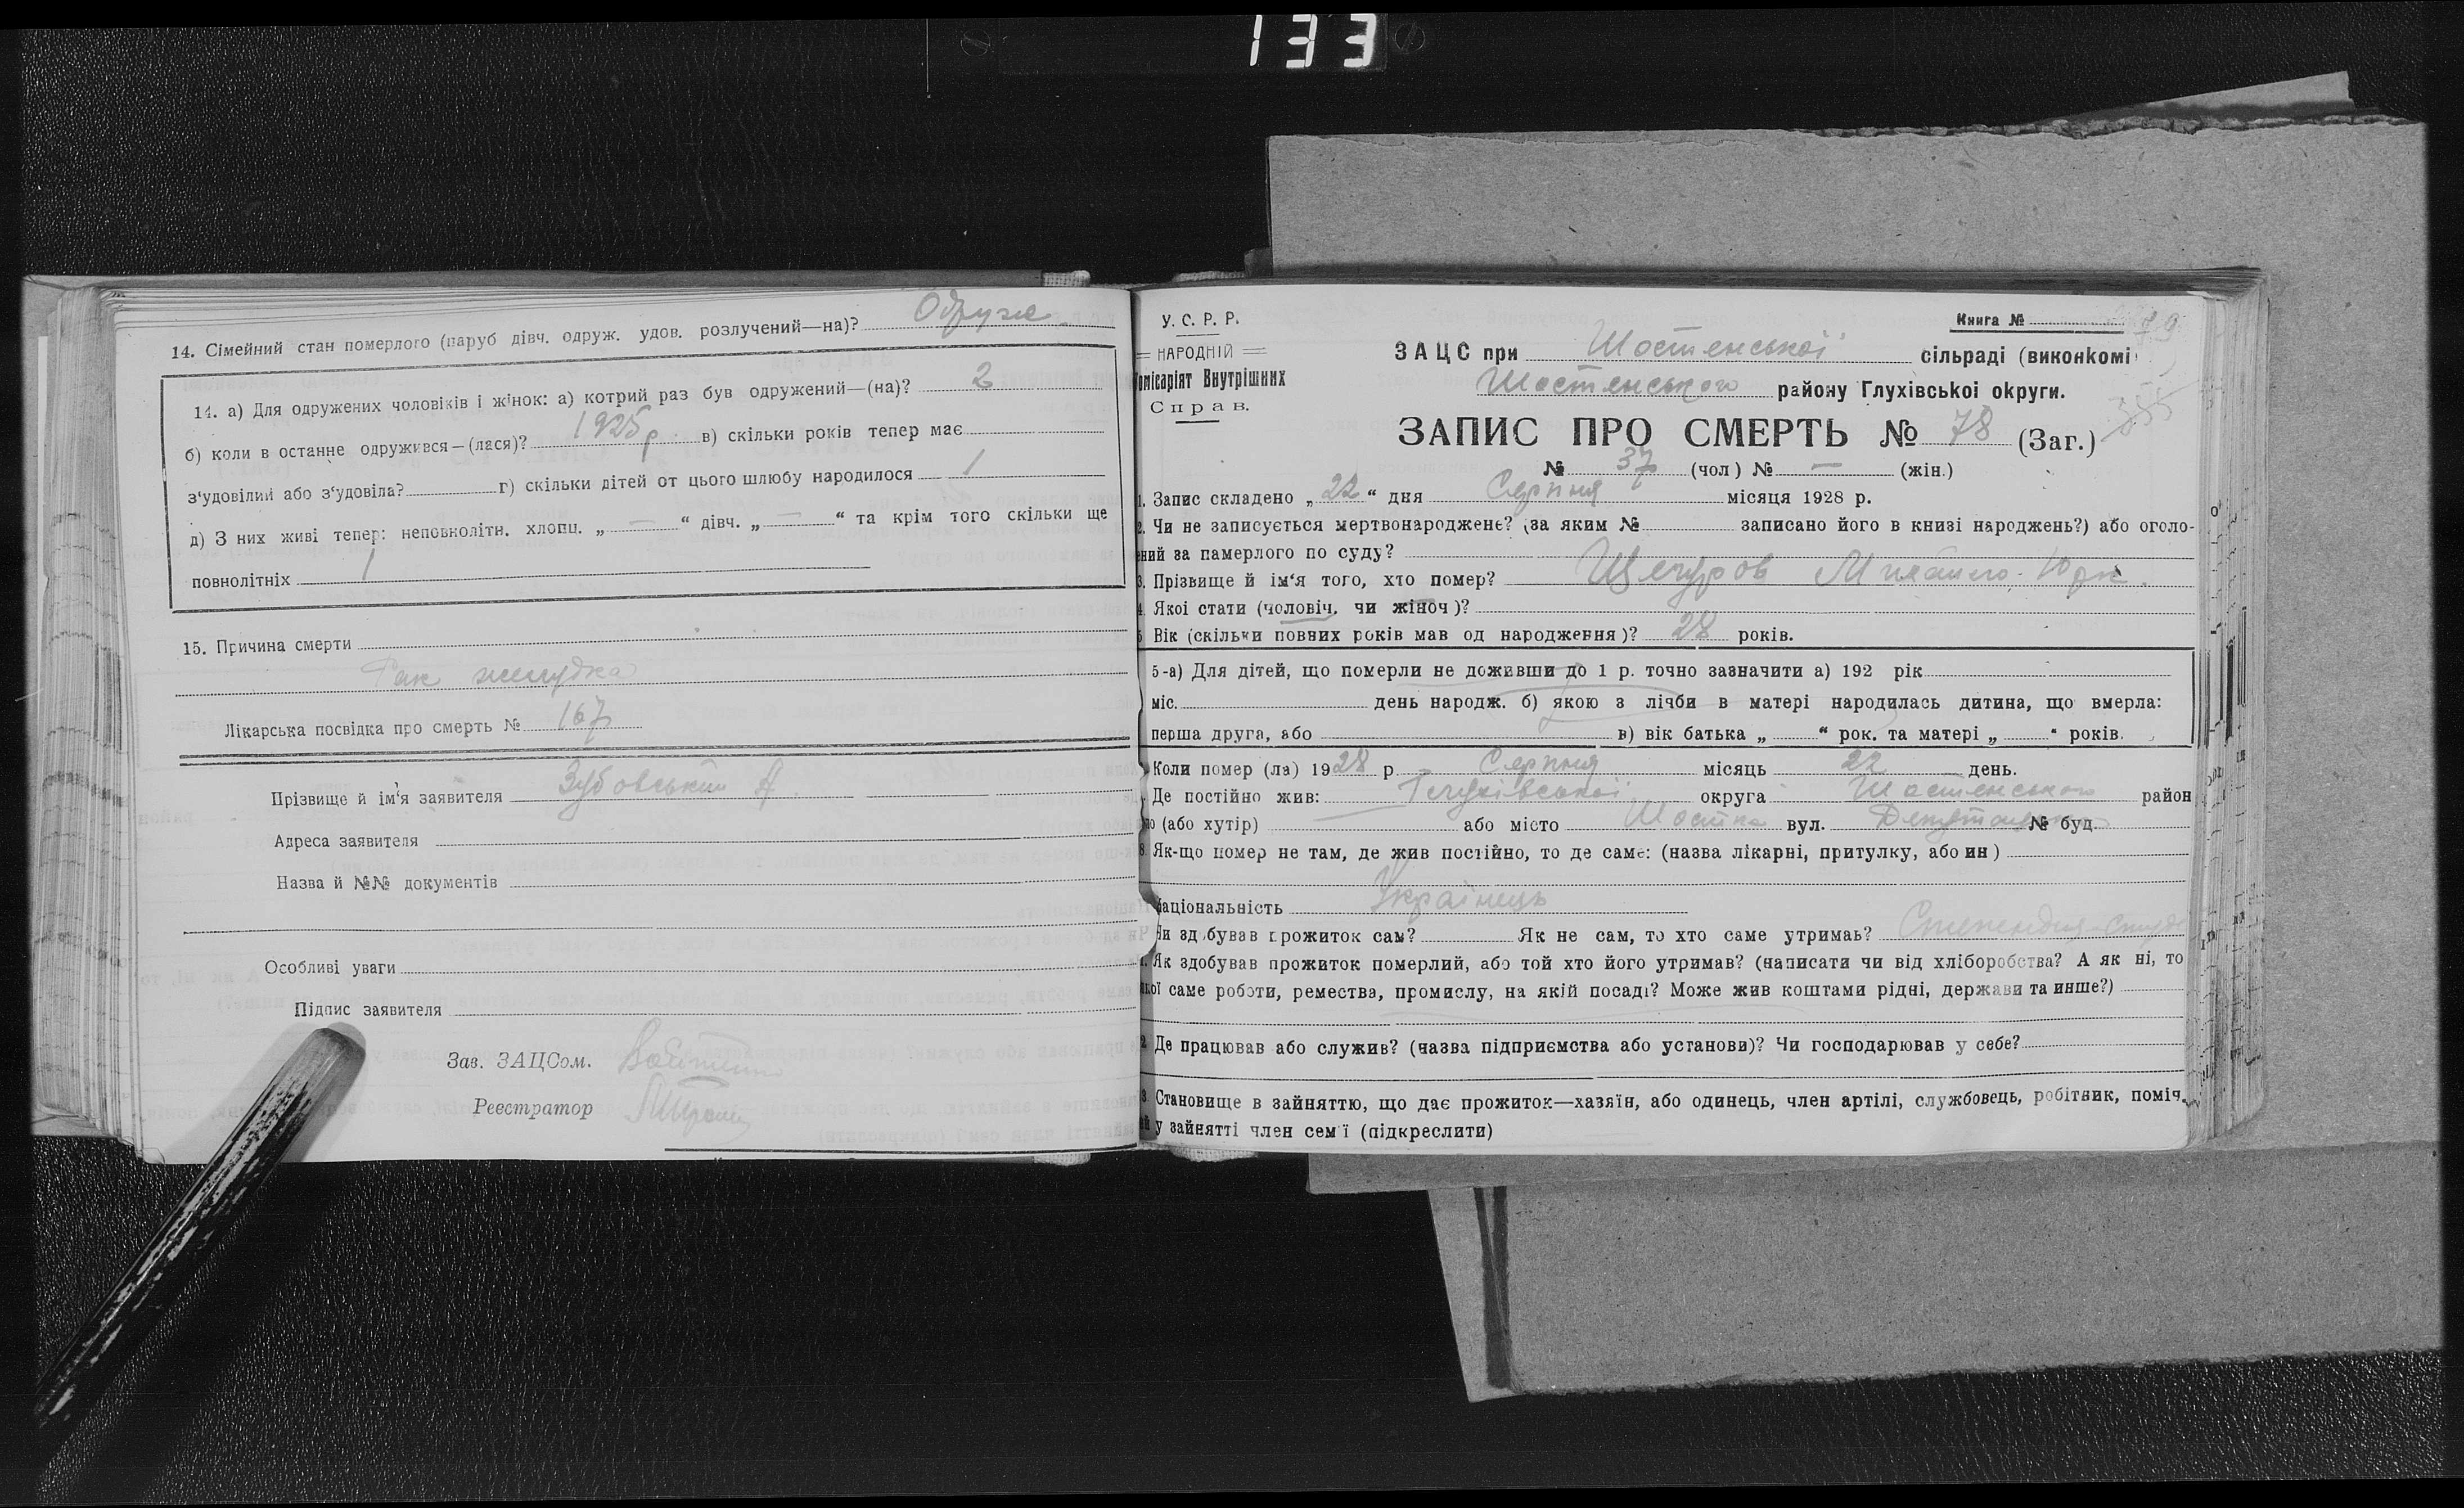 133
14. Сімейний стан померлого (паруб дівч. одруж. удов. розлучений—на)? Одруже
14. а) Для одружених чоловіків і жінок: а) котрий раз був одружений—(на)? 2
б) коли в останне одружився—(лася)? 1925 р в) скільки років тепер має
з'удовілий або з'удовіла? г) скільки дітей от цього шлюбу народилося 1
д) З них живі тепер: неповнолітн. хлопц. „ — “ дівч. „ — “ та крім того скільки ще
повнолітніх 1
15. Причина смерти
Рак желудка
Лікарська посвідка про смерть № 167
Прізвище й ім'я заявителя Зубовський А.
Адреса заявителя
Назва й №№ документів
Особливі уваги
Підпис заявителя
Зав. ЗАЦСом.
Реєстратор
У. С. Р. Р.
НАРОДНІЙ
Комісаріят Внутрішних
Справ.
Книга № 79
ЗАЦС при Шостенської сільраді (виконкомі)
Шостенського району Глухівської округи.
ЗАПИС ПРО СМЕРТЬ № 78 (Заг.) 355
№ 37 (чол) № — (жін.)
1. Запис складено „22“ дня Серпня місяця 1928 р.
2. Чи не записується мертвонароджене? (за яким № записано його в книзі народжень?) або оголо-
ений за памерлого по суду?
3. Прізвище й ім'я того, хто помер? Михайло Юрк.
4. Якої стати (чоловіч. чи жіноч)?
5 Вік (скільки повних років мав од народження)? 28 років.
5-а) Для дітей, що померли не доживши до 1 р. точно зазначити а) 192 рік
міс. день народж. б) якою з лічби в матері народилась дитина, що вмерла:
перша друга, або в) вік батька „ “ рок. та матері „ “ років.
Коли помер (ла) 1928 р. Серпня місяць 22 день.
Де постійно жив: Глухівської округа Шостенського район
(або хутір) або місто Шостка вул. № буд.
8. Як-що помер не там, де жив постійно, то де саме: (назва лікарні, притулку, або ин)
Національність Українець
Чи здобував прожиток сам? Як не сам, то хто саме утримав?
Як здобував прожиток померлий, або той хто його утримав? (написати чи від хліборобства? А як ні, то
якої саме роботи, ремества, промислу, на якій посаді? Може жив коштами рідні, держави та инше?)
2 Де працював або служив? (назва підприємства або установи)? Чи господарював у себе?
3 Становище в зайняттю, що дає прожиток—хазяїн, або одинець, член артілі, службовець, робітник, поміч.
у зайнятті член сем'ї (підкреслити)